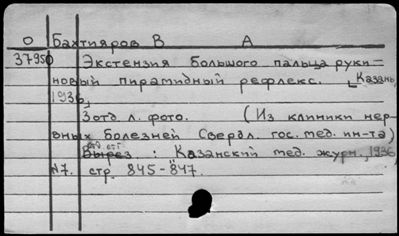 О Бахтияров В А
37950 Экстензия большого пальца руки =
новый пирамидный рефлекс. [Казань,
1936,
3 отд. л. фото. (Из клиники нер-
вных болезней Свердл. гос. мед. ин-та)
Отд. отт.
Вырез. : Казанский мед. журн., 1936,
№7. стр. 845-847.